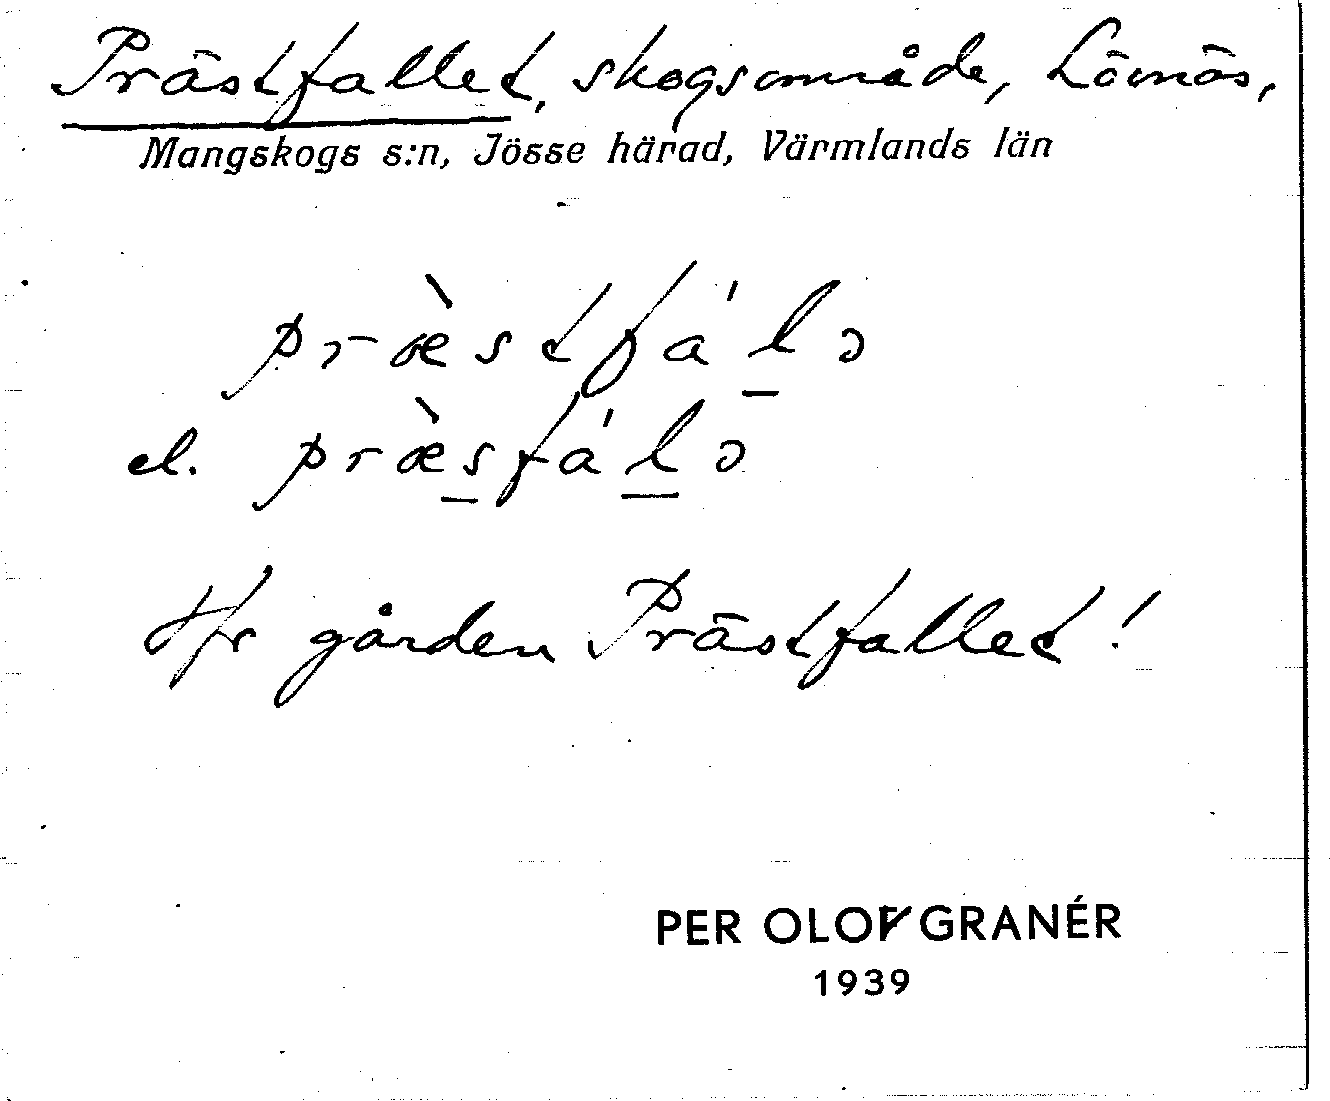 Prästfallet, skogsområde, Lövnäs,
Mangskogs s:n, Jösse härad, Värmlands län
præ̀stfál̲ɔ
el. præ̀s̲fál̲ɔ
Jfr gården Prästfallet!
PER OLOV GRANÉR
1939